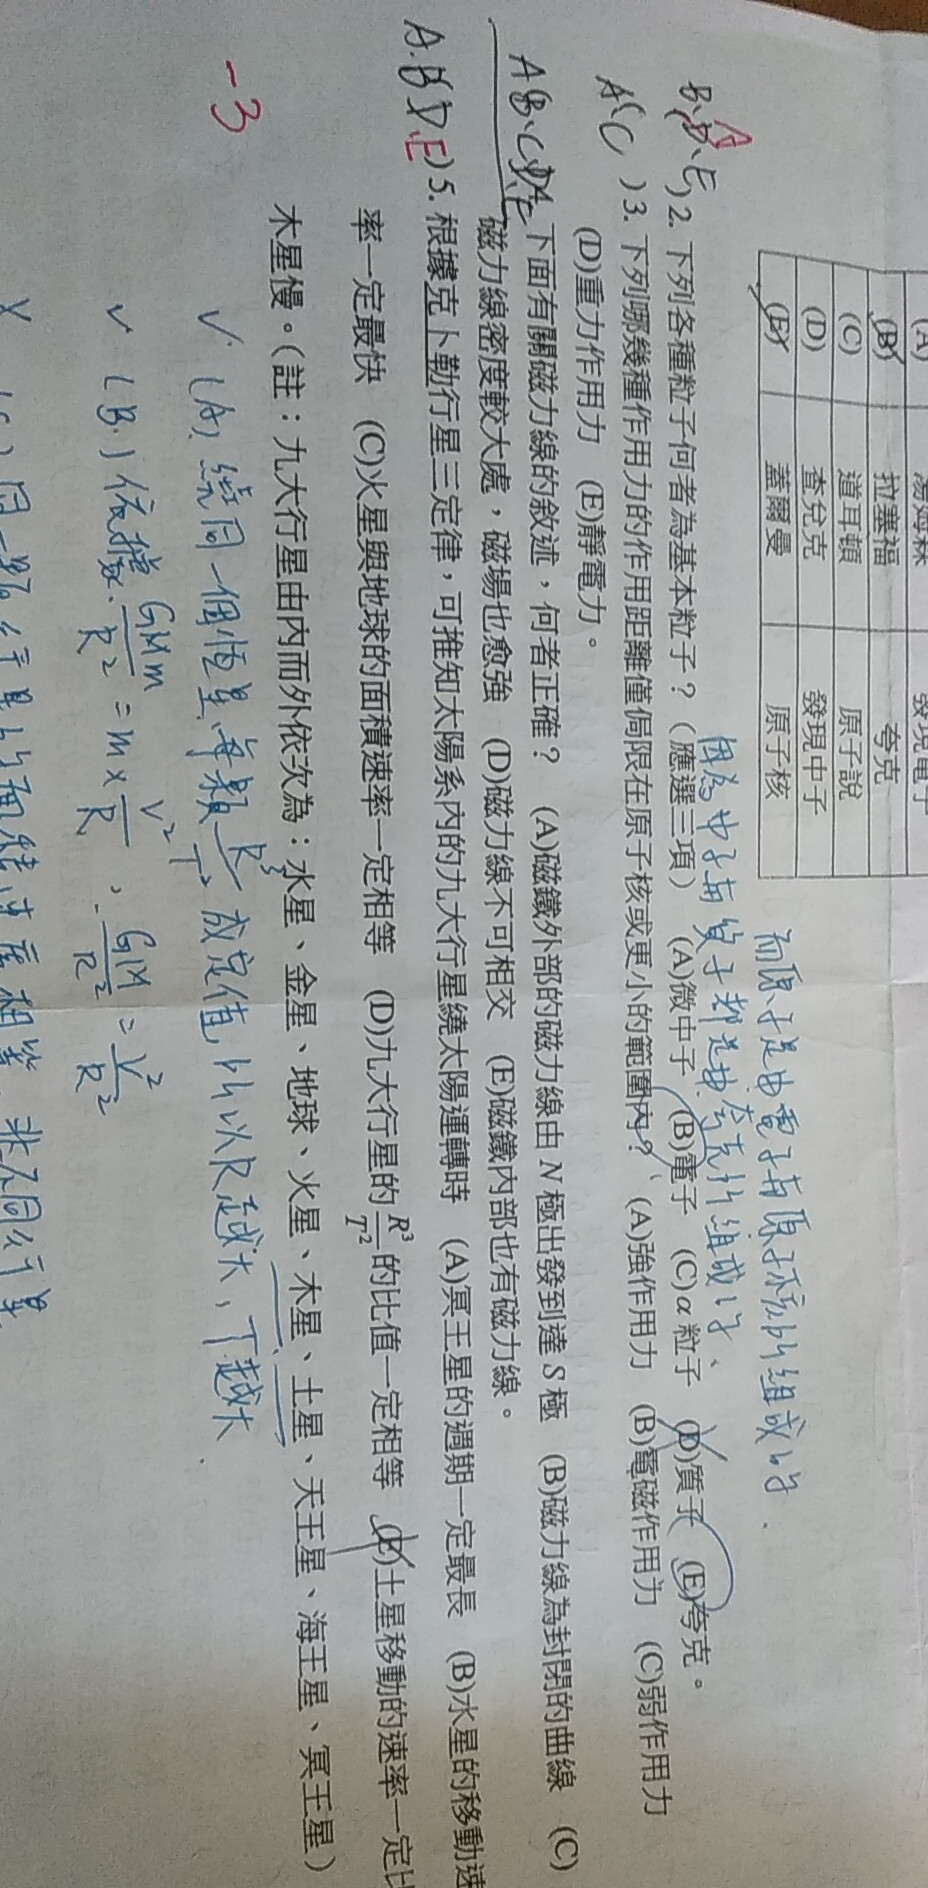 (A) 湯姆林 發現電子
(B) 拉塞福 夸克
(C) 道耳頓 原子說
(D) 查兌克 發現中子
(E) 蓋爾曼 原子核
而原子是由電子與原子核所組成的.
因為中子與質子都是由夸克所組成的、
B、D、E A
)2. 下列各種粒子何者為基本粒子？（應選三項） (A)微中子 (B)電子 (C)α粒子 (D)質子 (E)夸克。
A、C )3. 下列哪幾種作用力的作用距離僅侷限在原子核或更小的範圍內？ (A)強作用力 (B)電磁作用力 (C)弱作用力
(D)重力作用力 (E)靜電力。
A、B、C、D、E 4. 下面有關磁力線的敘述，何者正確？ (A)磁鐵外部的磁力線由 N 極出發到達 S 極 (B)磁力線為封閉的曲線 (C)
磁力線密度較大處，磁場也愈強 (D)磁力線不可相交 (E)磁鐵內部也有磁力線。
A、B、D、E )5. 根據克卜勒行星三定律，可推知太陽系內的九大行星繞太陽運轉時 (A)冥王星的週期一定最長 (B)水星的移動速
率一定最快 (C)火星與地球的面積速率一定相等 (D)九大行星的 R³/T² 的比值一定相等 (E)土星移動的速率一定比
木星慢。(註：九大行星由內而外依次為：水星、金星、地球、火星、木星、土星、天王星、海王星、冥王星）
-3
✓ (A). 繞同一個恆星,每顆 R³/T² 成定值,所以R越大，T越大.
✓ (B.) 依據. GMm/R² = m × V²/R , GM/R² = V²/R²
X (C.) 同一顆行星的面積速度相等, 非不同行星